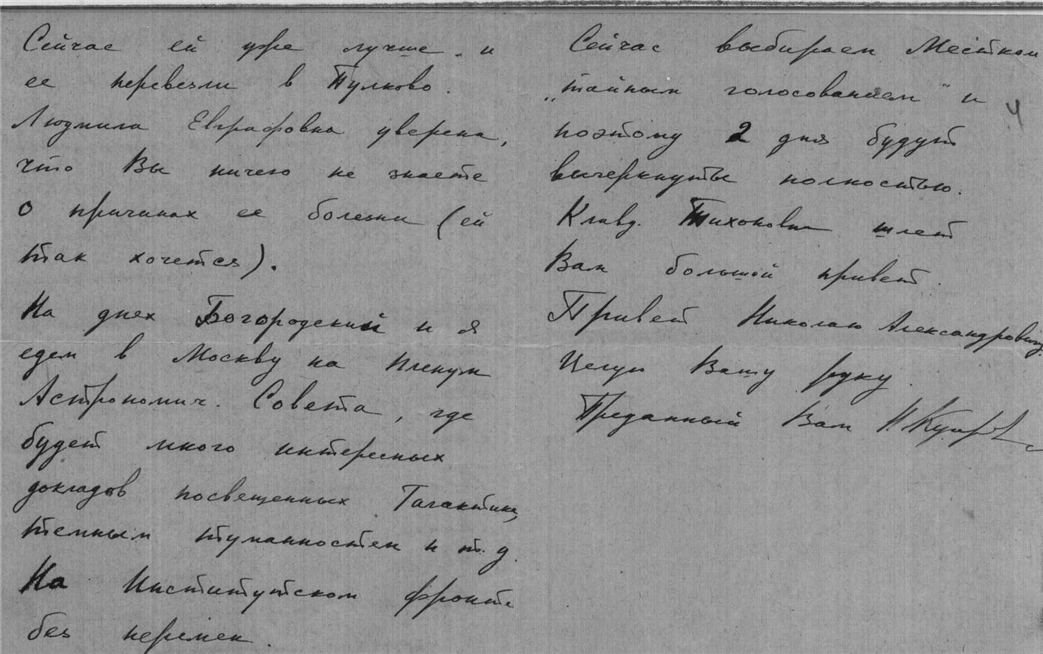 Сейчас ей уже лучше и
ее перевезли в Пулково.
Людмила Евграфовна уверена,
что Вы ничего не знаете
о причинах ее болезни (ей
так хочется).
На днях Богородский и я
едем в Москву на пленум
Астрономич. Совета, где
будет много интересных
докладов посвященных Галактике,
темным туманностям и т.д.
На Институтском фронте
без перемен.
Сейчас выбираем Местком
„тайным голосованием" и
4
поэтому 2 дня будут
вычеркнуты полностью.
Клавд. Тихоновна шлет
Вам большой привет.
Привет Николаю Александровичу.
Целую Вашу руку.
Преданный Вам Н.